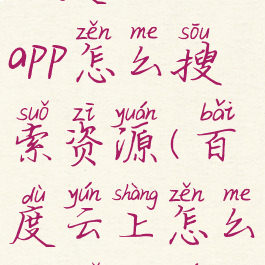 zěn me sōu
app怎么搜
suǒ zī yuán bǎi
索资源(百
dù yún shàng zěn me
度云上怎么